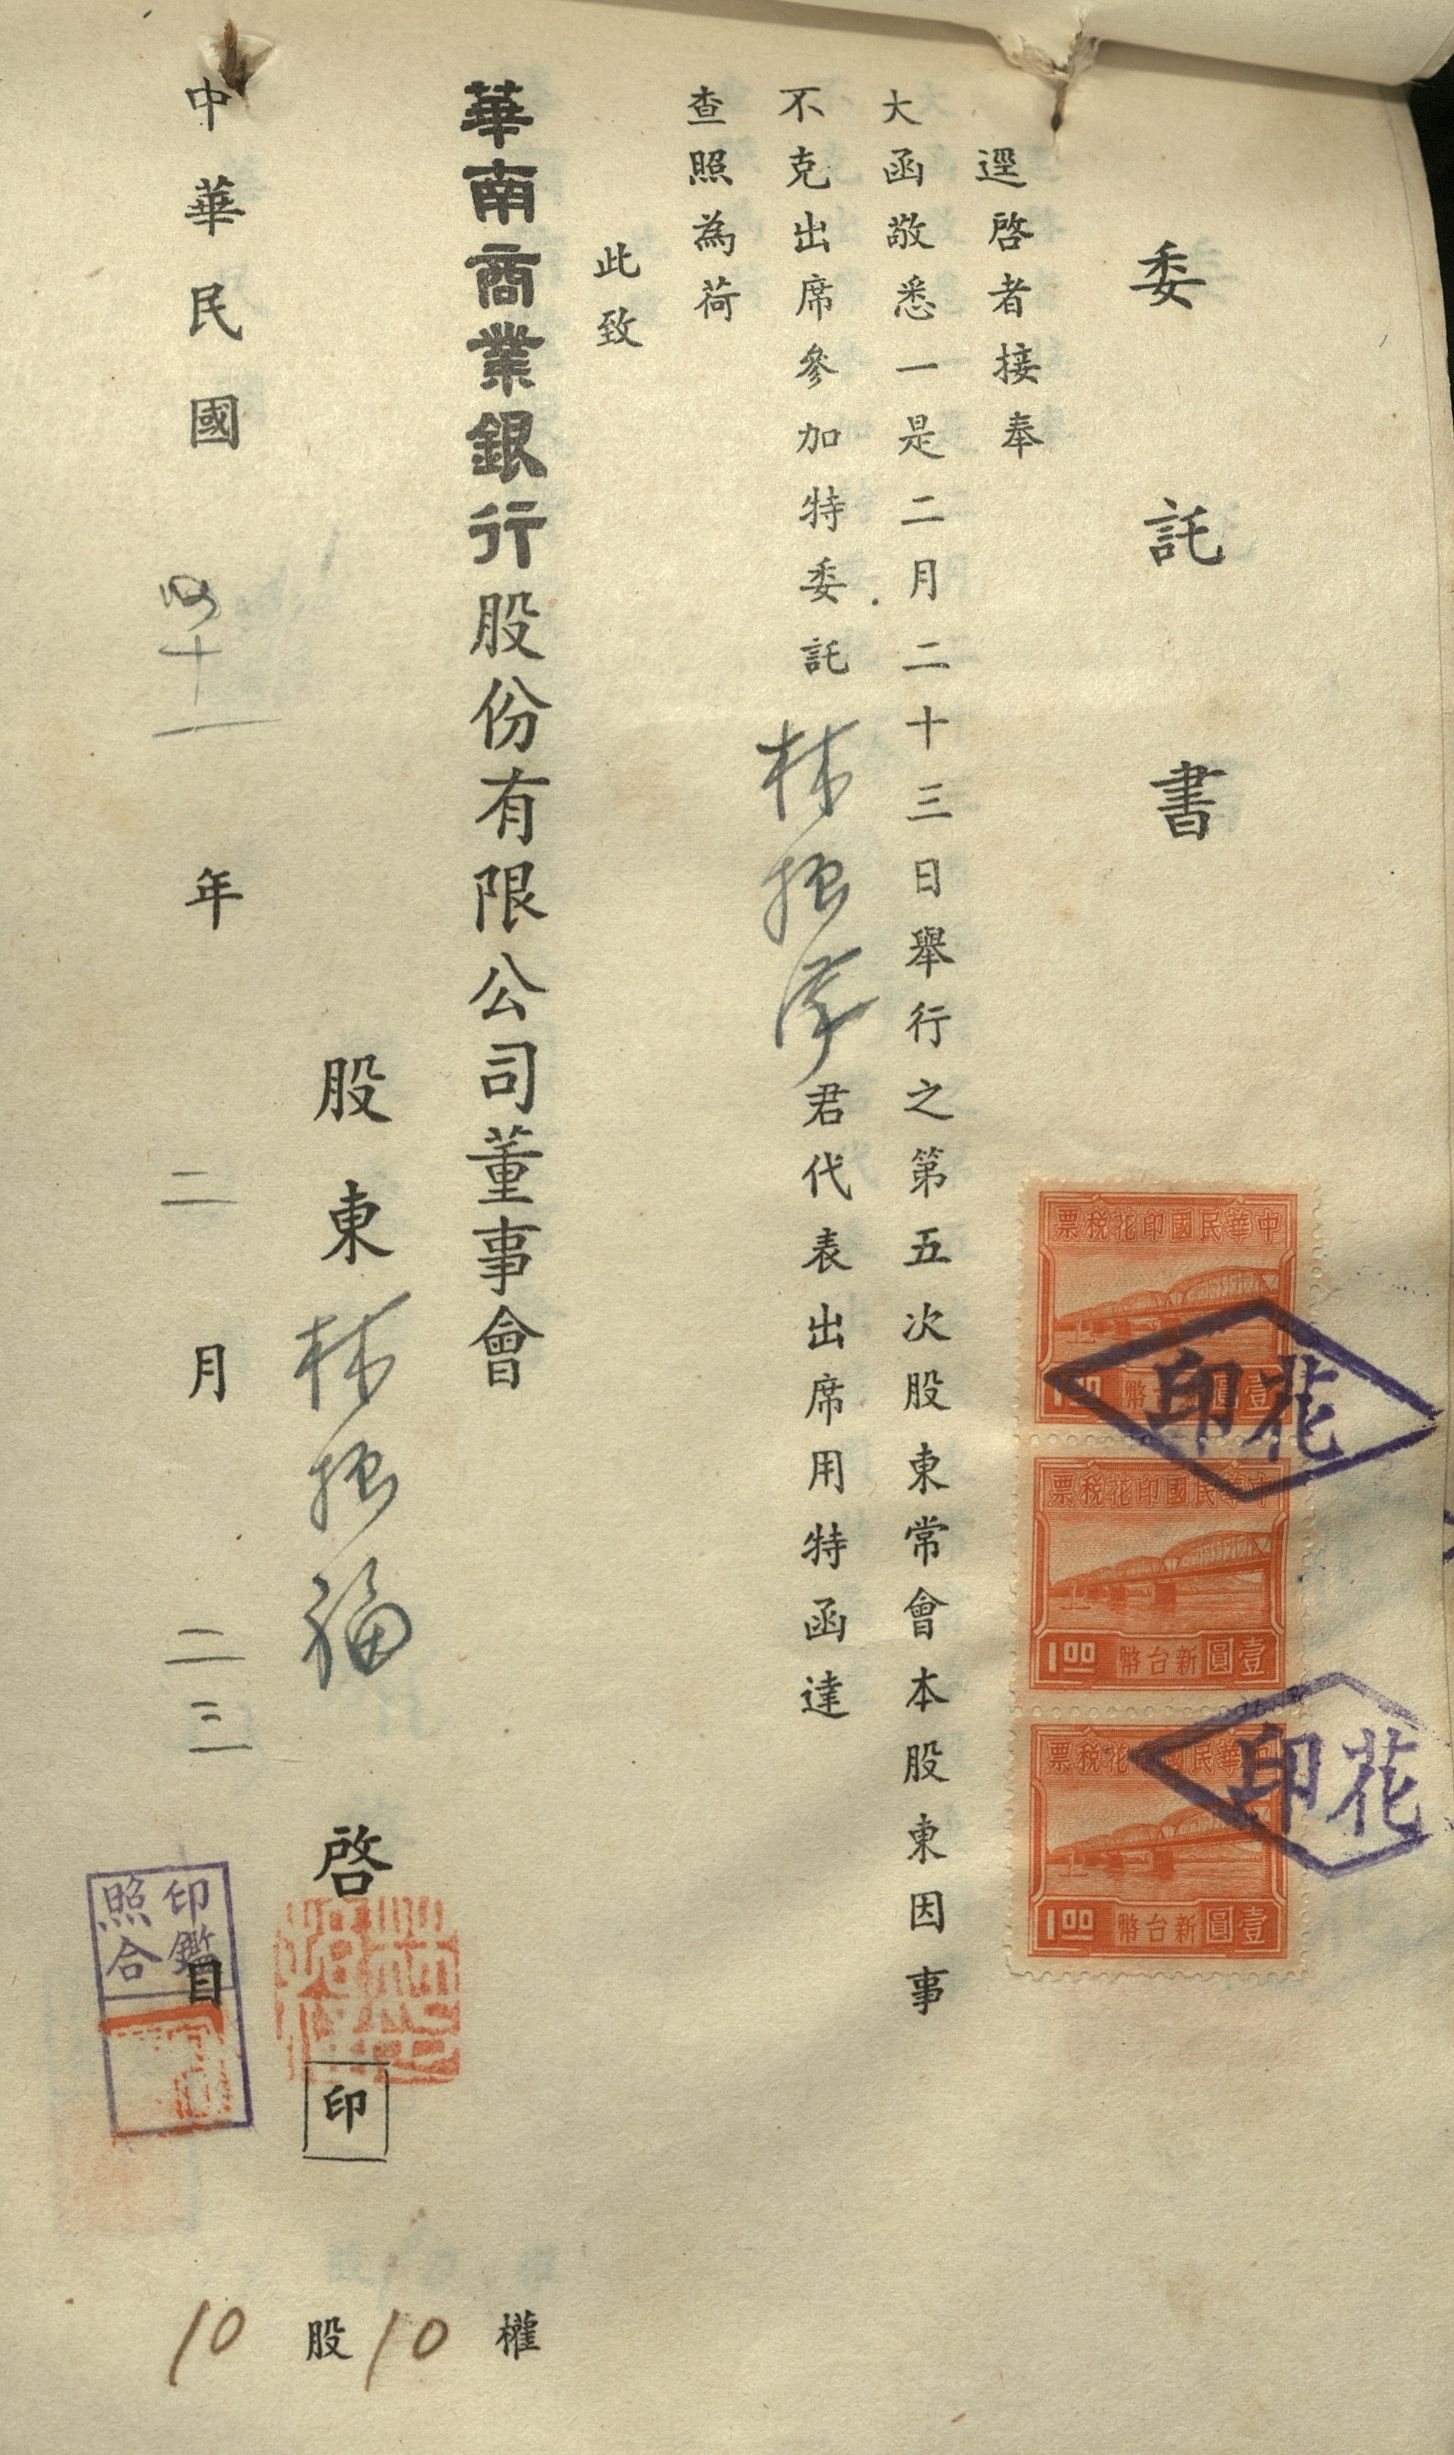 委託書
逕啓者接奉
大函敬悉一是二月二十三日舉行之第五次股東常會本股東因事
不克出席參加特委託林振
君代表出席用特函達
查照為荷
此致
華南商業銀行股份有限公司董事會
股東林振福啓
印
中華民國四十一年二月二三日
權
10股10
中華民國印花稅票
1.00 新台幣壹圓
花印
中華民國印花稅票
1.00 新台幣壹圓
中華民國印花稅票
1.00 新台幣壹圓
花印
印鑑
照合